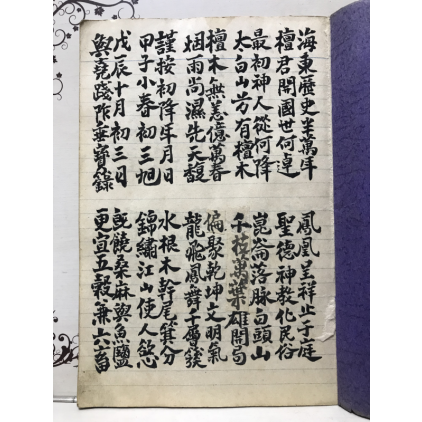 海東歷史半萬年
檀君開國世何逴
最初神人從何降
太白山芳有檀木
檀木無恙億萬春
烟雨尚濕先天馥
謹按初降年月日
甲子小春初三旭
戊辰十月初三日
與堯踐阼垂寶錄
鳳凰呈祥止于庭
聖德神敎化民俗
崑崙落脉白頭山
千枝萬葉雄開局
偏聚乾坤文明氣
龍飛鳳舞千層簇
水根木幹尾箕分
錦繡江山使人慾
旣饒桑麻與魚鹽
更宜五穀兼六畜